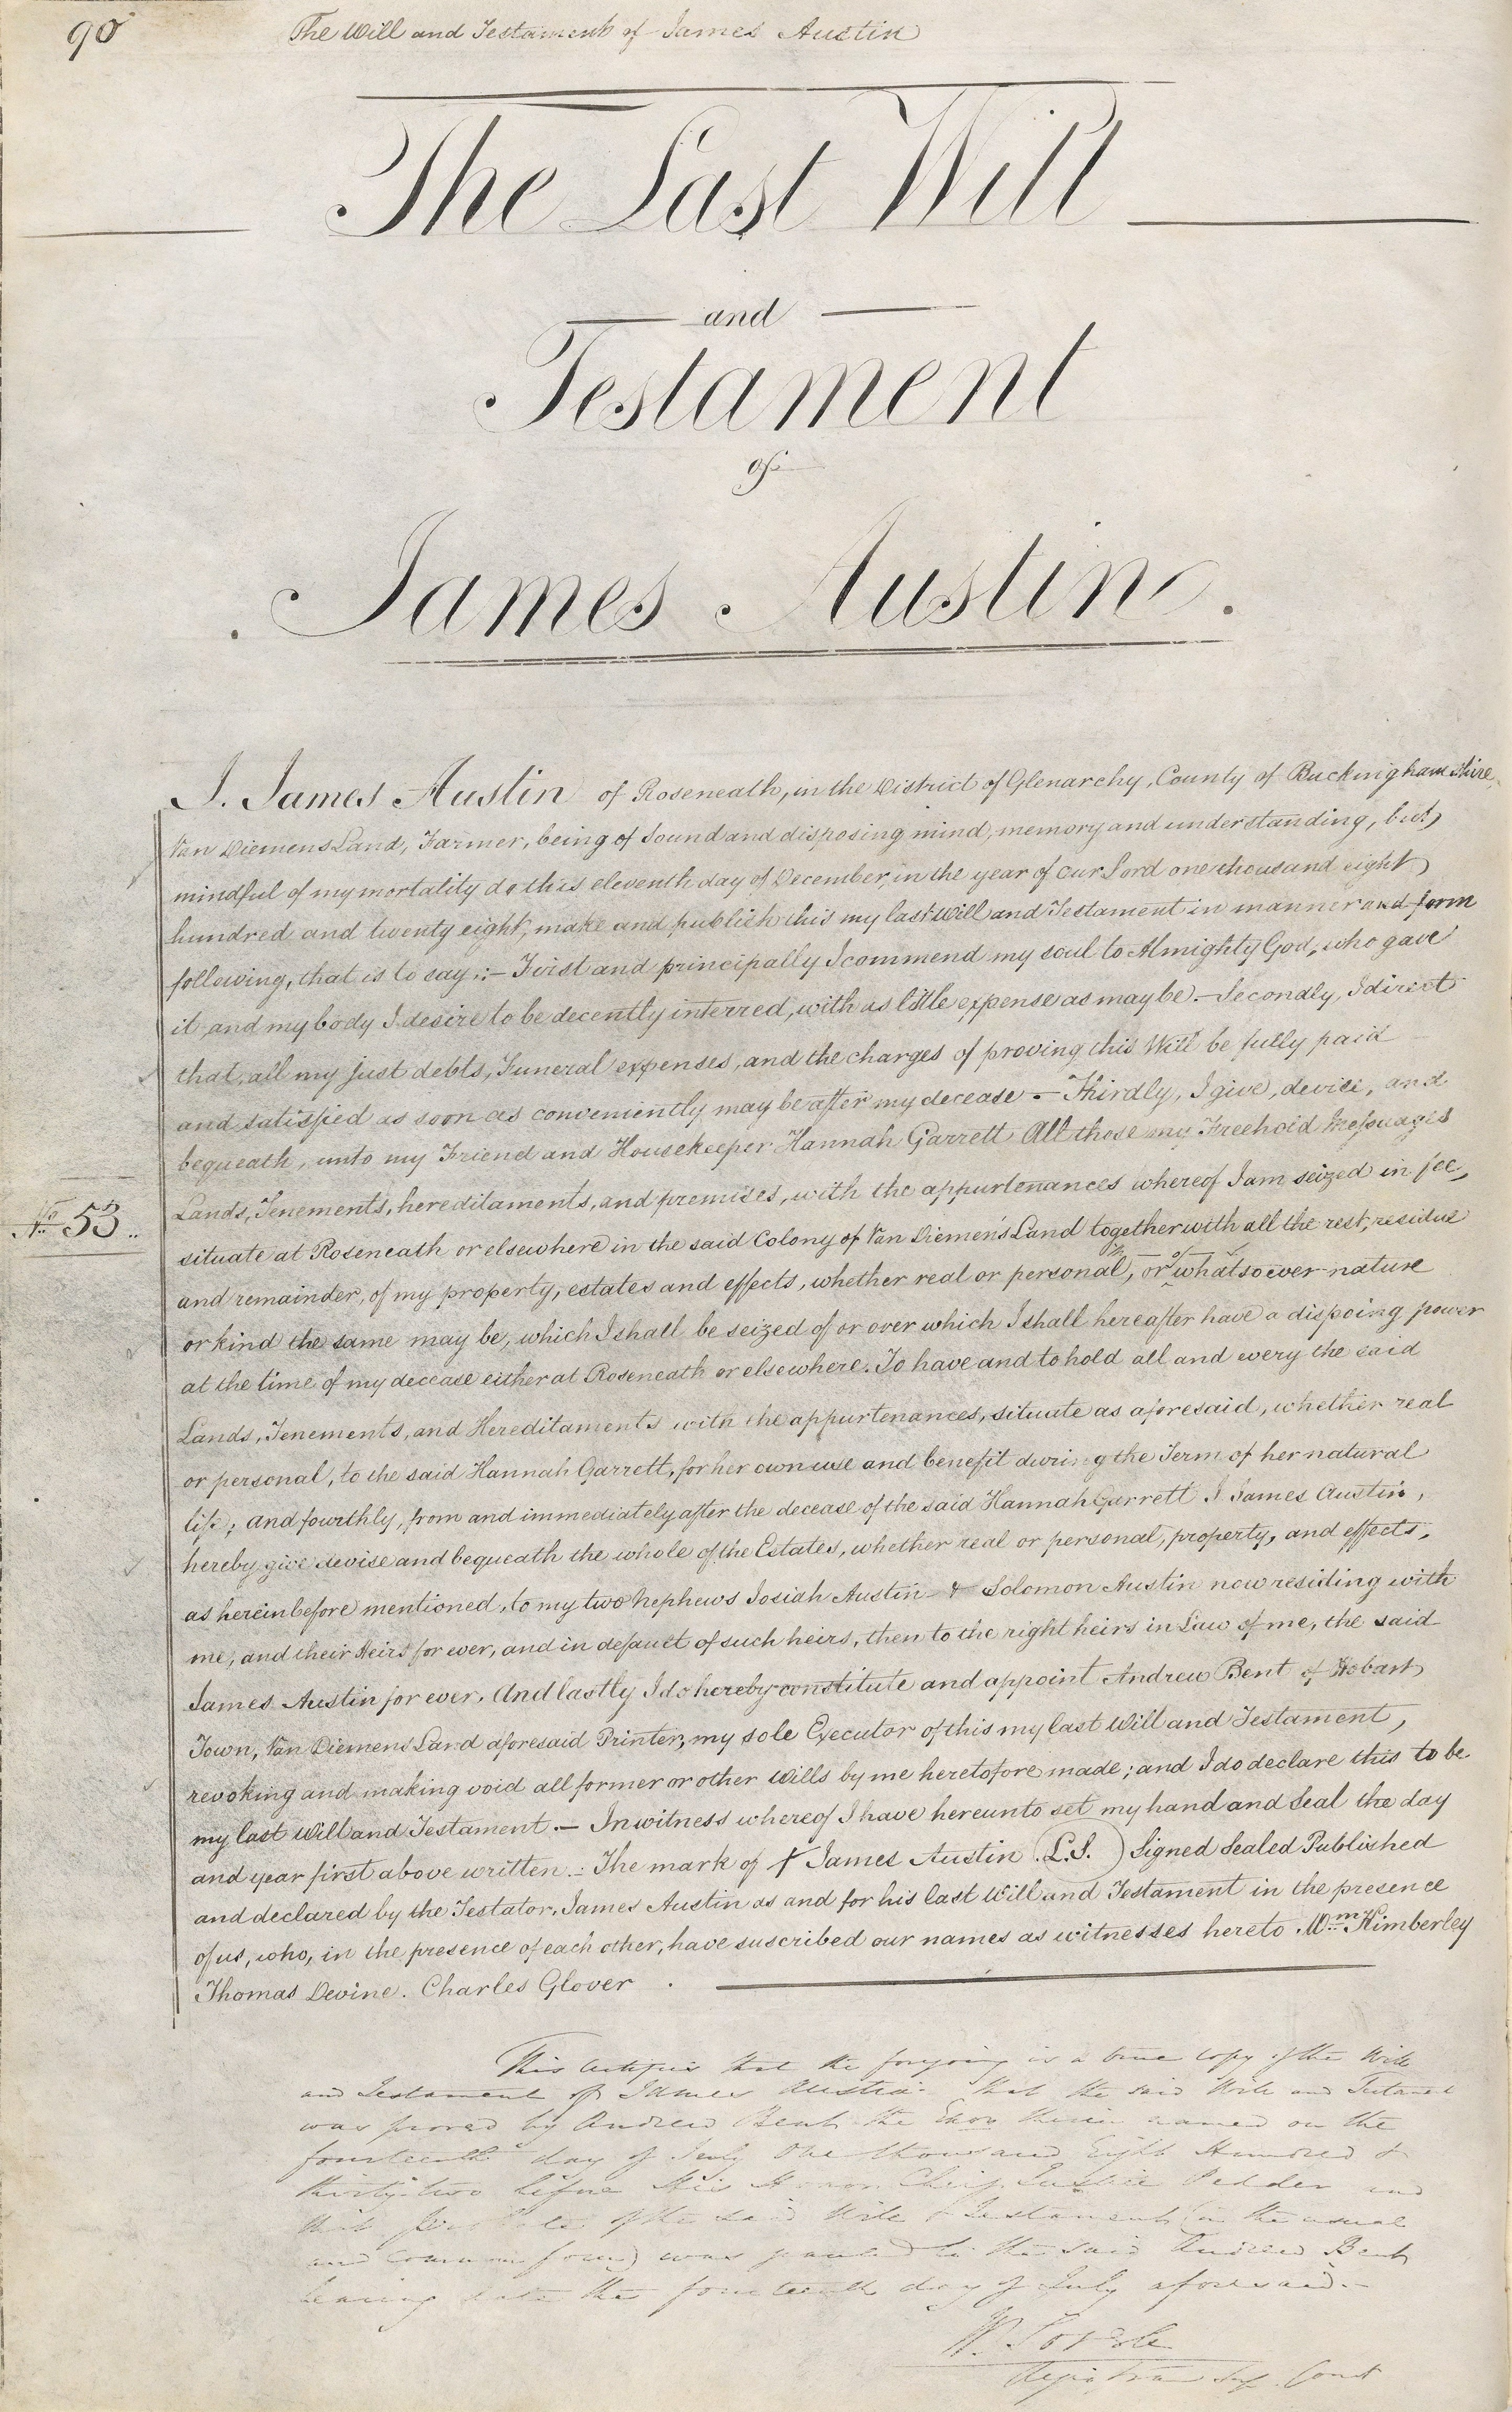 90
The Will and Testament of James Austin
The Last Will
and
Testament
of
James Austin.
I. James Austin of Roseneath, in the District of Glenarchy, County of Buckinghamshire,
Van Diemens Land, Farmer, being of sound and disposing mind, memory and understanding, but
mindful of my mortality do this eleventh day of December, in the year of our Lord one thousand eight
hundred and twenty eight, make and publish this my last Will and Testament in manner and form
following, that is to say :- First and principally I commend my soul to Almighty God, who gave
it, and my body I desire to be decently interred, with as little expense as may be.- Secondly, I direct
that, all my just debts, Funeral expenses, and the charges of proving this Will be fully paid
and satisfied as soon as conveniently may be after my decease.- Thirdly, I give, devise, and
bequeath, unto my Friend and Housekeeper Hannah Garrett All those my Freehold Messuages
Lands, Tenements, hereditaments, and premises, with the appurtenances whereof I am seized in fee,
No 53..
situate at Roseneath or elsewhere in the said Colony of Van Diemen's Land together with all the rest, residue
and remainder, of my property, estates and effects, whether real or personal, or of whatsoever nature
or kind the same may be, which I shall be seized of or over which I shall hereafter have a dispoing power
at the time of my decease either at Roseneath or elsewhere. To have and to hold all and every the said
Lands, Tenements, and Hereditaments with the appurtenances, situate as aforesaid, whether real
or personal, to the said Hannah Garrett, for her own use and benefit during the Term of her natural
life; and fourthly, from and immediately after the decease of the said Hannah Garrett I James Austin,
hereby give devise and bequeath the whole of the Estates, whether real or personal, property, and effects,
as hereinbefore mentioned, to my two nephews Josiah Austin & Solomon Austin now residing with
me, and their Heirs for ever, and in default of such heirs, then to the right heirs in Law of me, the said
James Austin for ever. And lastly I do hereby constitute and appoint Andrew Bent of Hobart
Town, Van Diemens Land aforesaid Printer, my sole Executor of this my last Will and Testament,
revoking and making void all former or other Wills by me heretofore made; and I do declare this to be
my last Will and Testament.- In witness whereof I have hereunto set my hand and Seal the day
and year first above written.- The mark of X James Austin (L.S.) Signed Sealed Published
and declared by the Testator, James Austin as and for his last Will and Testament in the presence
of us, who, in the presence of each other, have suscribed our names as witnesses hereto. Wm Kimberley
Thomas Devine. Charles Glover.
This certifies that the foregoing is a true copy of the Will
and Testament of James Austin. That the said Will and Testament
was proved by Andrew Bent the Exor therein named on the
fourteenth day of July One thousand Eight Hundred &
thirty two before His Honor Chief Justice Pedder and
that Probate of the said Will & Testament (in the usual
and common form) was granted to the said Andrew Bent
bearing date the fourteenth day of July aforesaid.-
W. Sorell
Registrar Sup. Court